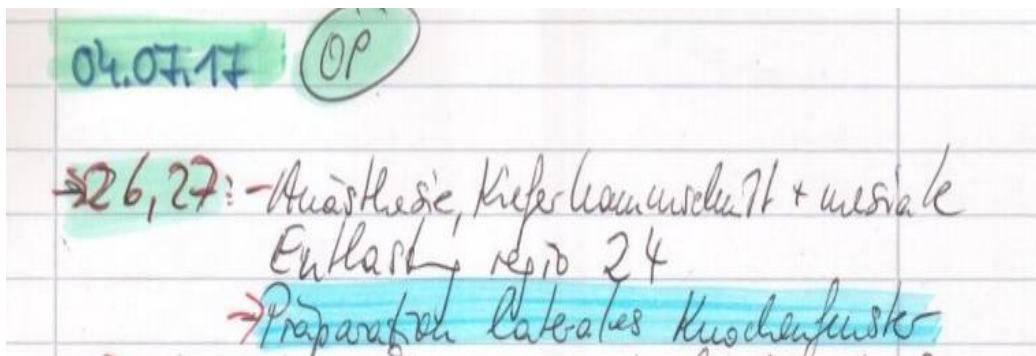 04.07.17 OP
→26,27: - Anästhesie, Kieferkammschnitt + mesiale
Entlastung regio 24
→ Präparation laterales Knochenfenster